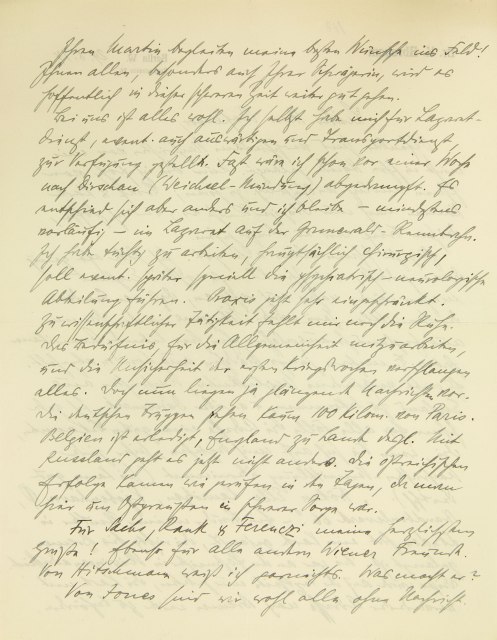 Ihren Martin begleiten meine besten Wünsche ins Feld!
Ihnen allen, besonders auch Ihrer Schwägerin, wird es
hoffentlich in dieser schweren Zeit weiter gut gehen.
Bei uns ist alles wohl. Ich selbst habe mich für Lazaret-
dienst, event. auch auswärtigen und Transportdienst
zur Verfügung gestellt. Fast wäre ich schon vor einer Woche
nach Dirschau (Weichsel-Mündung) abgedampft. Es
entschied sich aber anders und ich bleibe – mindestens
vorläufig – im Lazaret auf der Grunewald-Rennbahn.
Ich habe tüchtig zu arbeiten, hauptsächlich chirurgisch,
soll event. später speciell die psychiatrisch-neurologische
Abteilung führen. Praxis jetzt sehr eingeschränkt.
Zu wissenschaftlicher Tätigkeit fehlt mir noch die Ruhe.
Das Bedürfnis, für die Allgemeinheit mitzuarbeiten,
und die Unsicherheit der ersten Kriegswochen verschlangen
alles. Doch nun liegen ja glänzende Nachrichten vor.
Die deutschen Truppen stehen kaum 100 Kilom. von Paris.
Belgien ist erledigt, England zu Lande desgl. Mit
Russland geht es jetzt nicht anders. Die östreichischen
Erfolge kamen wie gerufen in den Tagen, da man
hier um Ostpreußen in schwerer Sorge war.
Für Sachs, Rank & Ferenczi meine herzlichsten
Grüße! Ebenso für alle andern Wiener Freunde.
Von Hitschmann weiß ich garnichts. Was macht er?
Von Jones sind wir wohl alle ohne Nachricht.